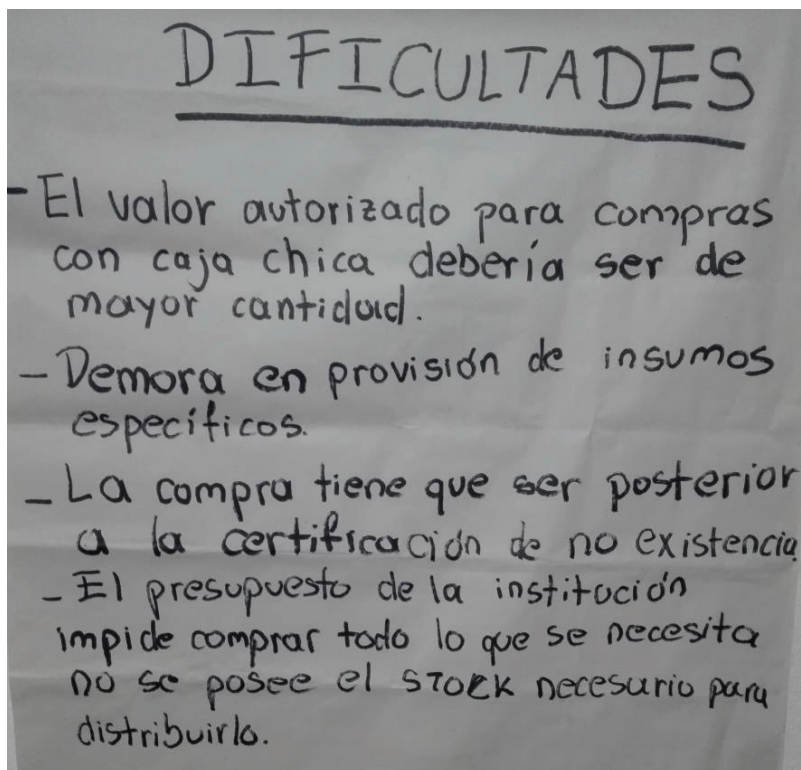 DIFICULTADES
- El valor autorizado para compras
con caja chica debería ser de
mayor cantidad.
- Demora en provisión de insumos
específicos.
- La compra tiene que ser posterior
a la certificación de no existencia
- El presupuesto de la institución
impide comprar todo lo que se necesita
no se posee el STOCK necesario para
distribuirlo.